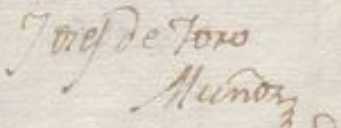 Josef de Toro
Muñoz